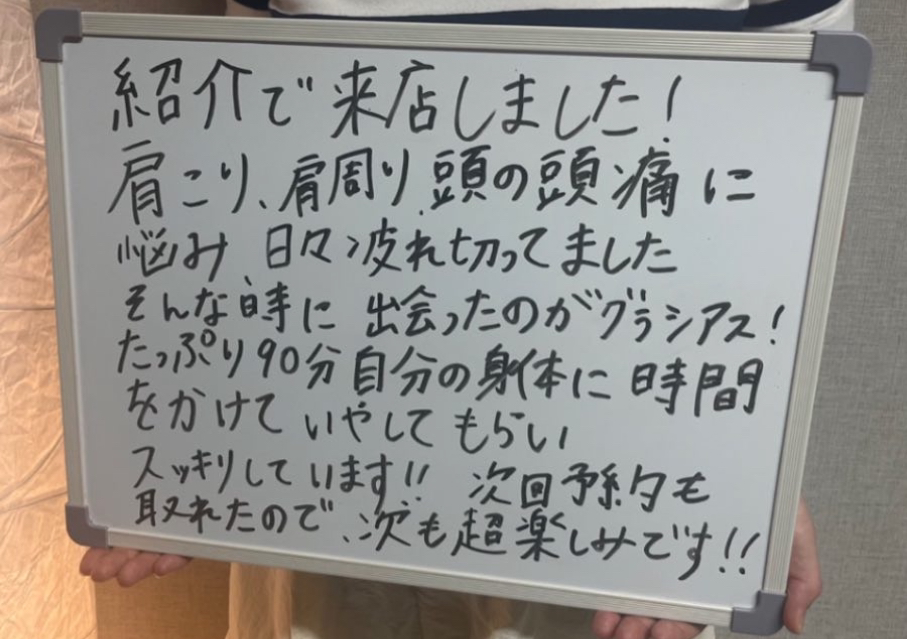 紹介で来店しました!
肩こり、肩周り、頭の頭痛に
悩み、日々疲れ切ってました
そんな時に 出会ったのがグラシアス!
たっぷり90分自分の身体に時間
をかけて いやしてもらい
スッキリしています!! 次回予約も
取れたので、次も超楽しみです!!